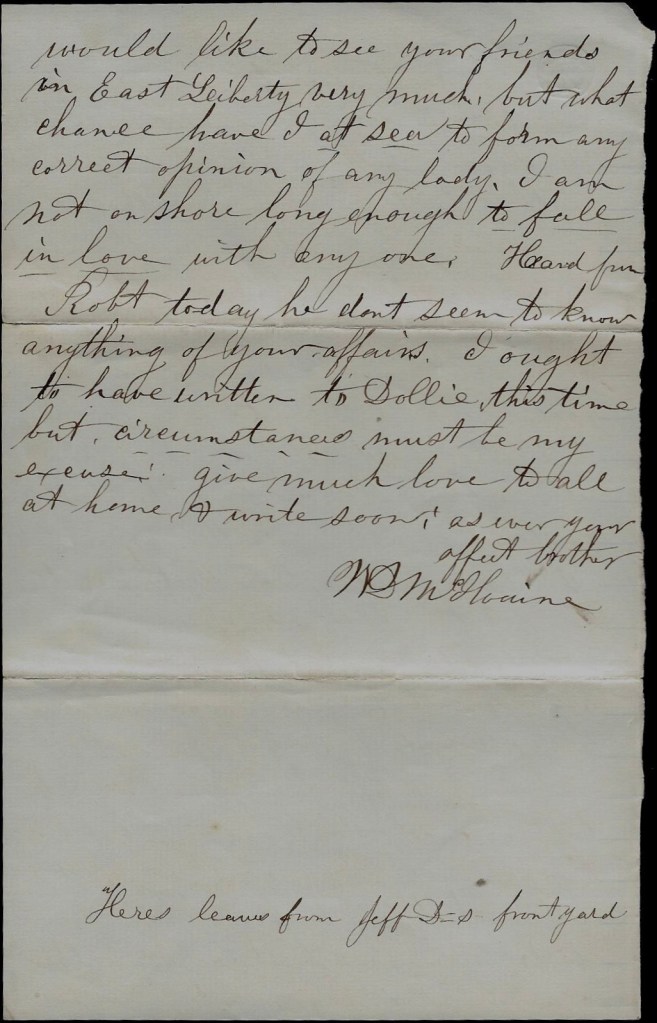 would like to see your friends
in East Leiberty very much, but what
chance have I at sea to form any
correct opinion of any lady. I am
not on shore long enough to fall
in love with any one. Heard from
Robt today he dont seem to know
anything of your affairs. I ought
to have written to Dollie this time
but, circumstances must be my
excuse! give much love to all
at home & write soon! as ever your
affect brother
W S McIlvaine
"Heres leaves from Jeff D=s front yard